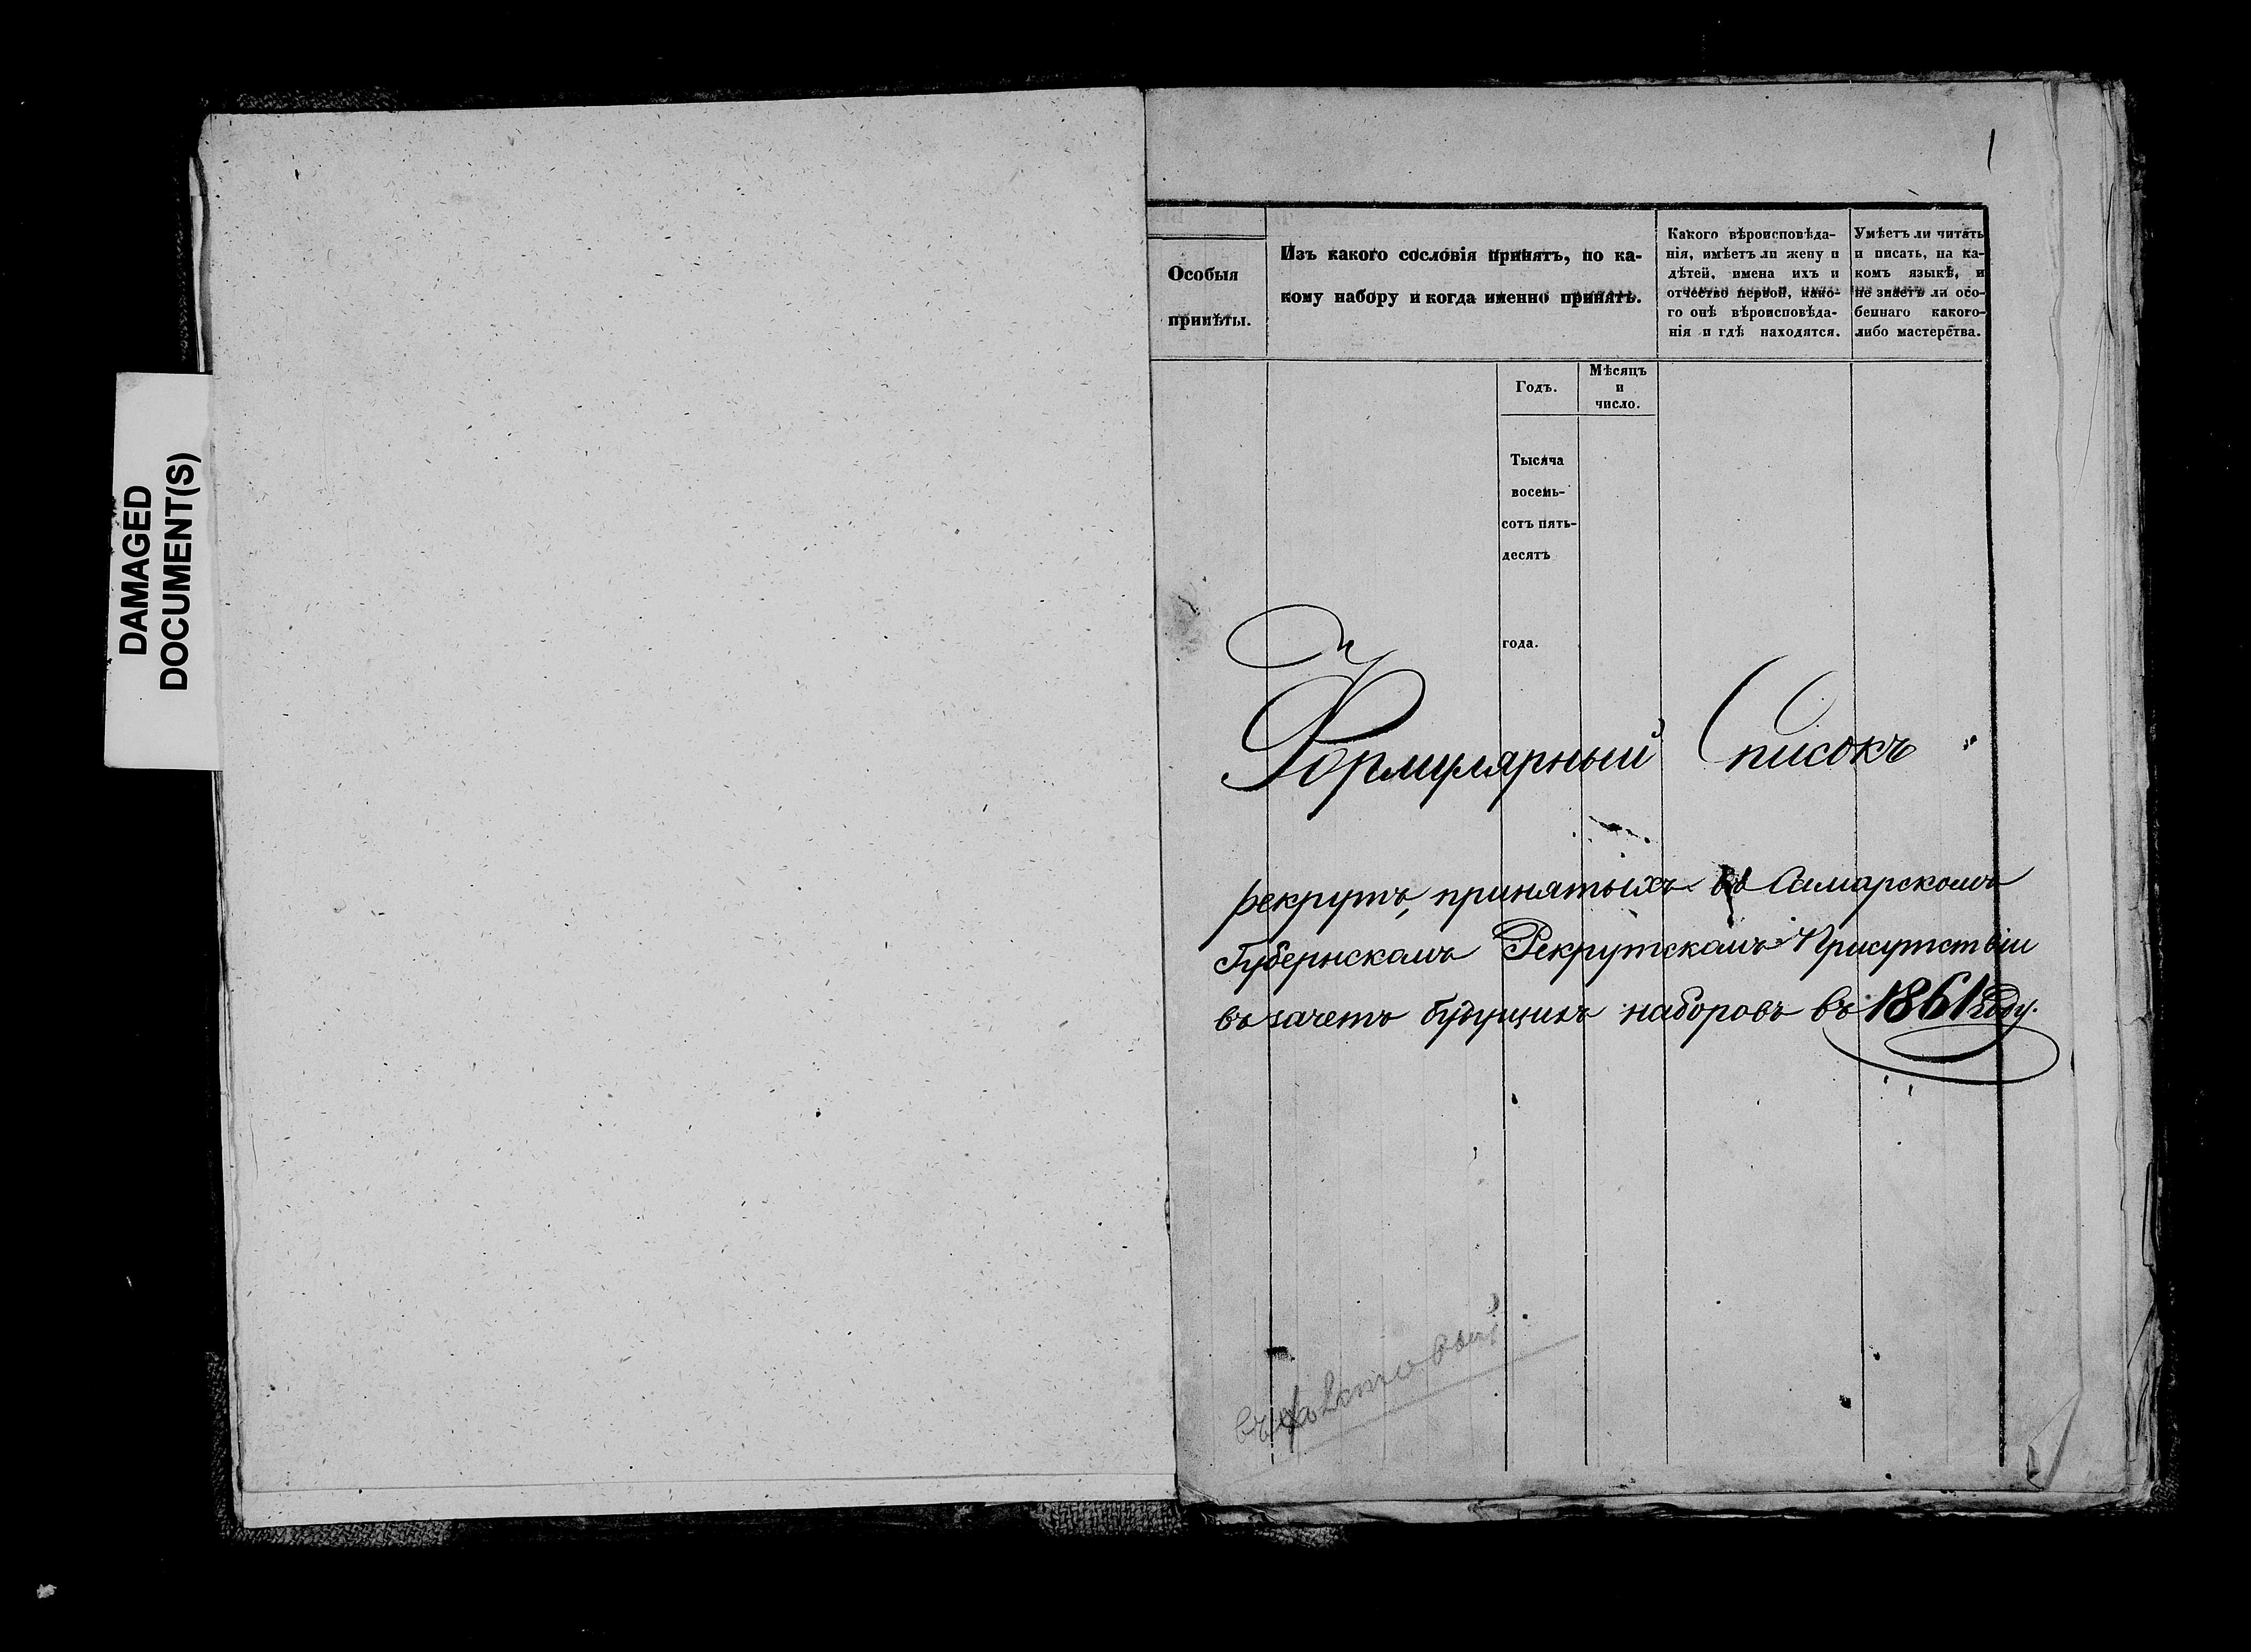 DAMAGED
DOCUMENT(S)
1
Особыя
примѣты.
Изъ какого сословія принятъ, по ка-
кому набору и когда именно принятъ.
Какого вѣроисповѣда-
нія, имѣетъ ли жену и
дѣтей, имена ихъ и
отчество первой, како-
го онѣ вѣроисповѣда-
нія и гдѣ находятся.
Умѣетъ ли читать
и писать, на ка-
комъ языкѣ, и
не знаетъ ли осо-
беннаго какого-
либо мастерства.
Годъ.
Мѣсяцъ
и
число.
Тысяча
восемь-
сотъ пять-
десятъ
года.
Формулярный Списокъ
рекрутъ, принятыхъ въ Самарскомъ
Губернскомъ Рекрутскомъ Присутствіи
въ зачетъ будущихъ наборовъ въ 1861 году.